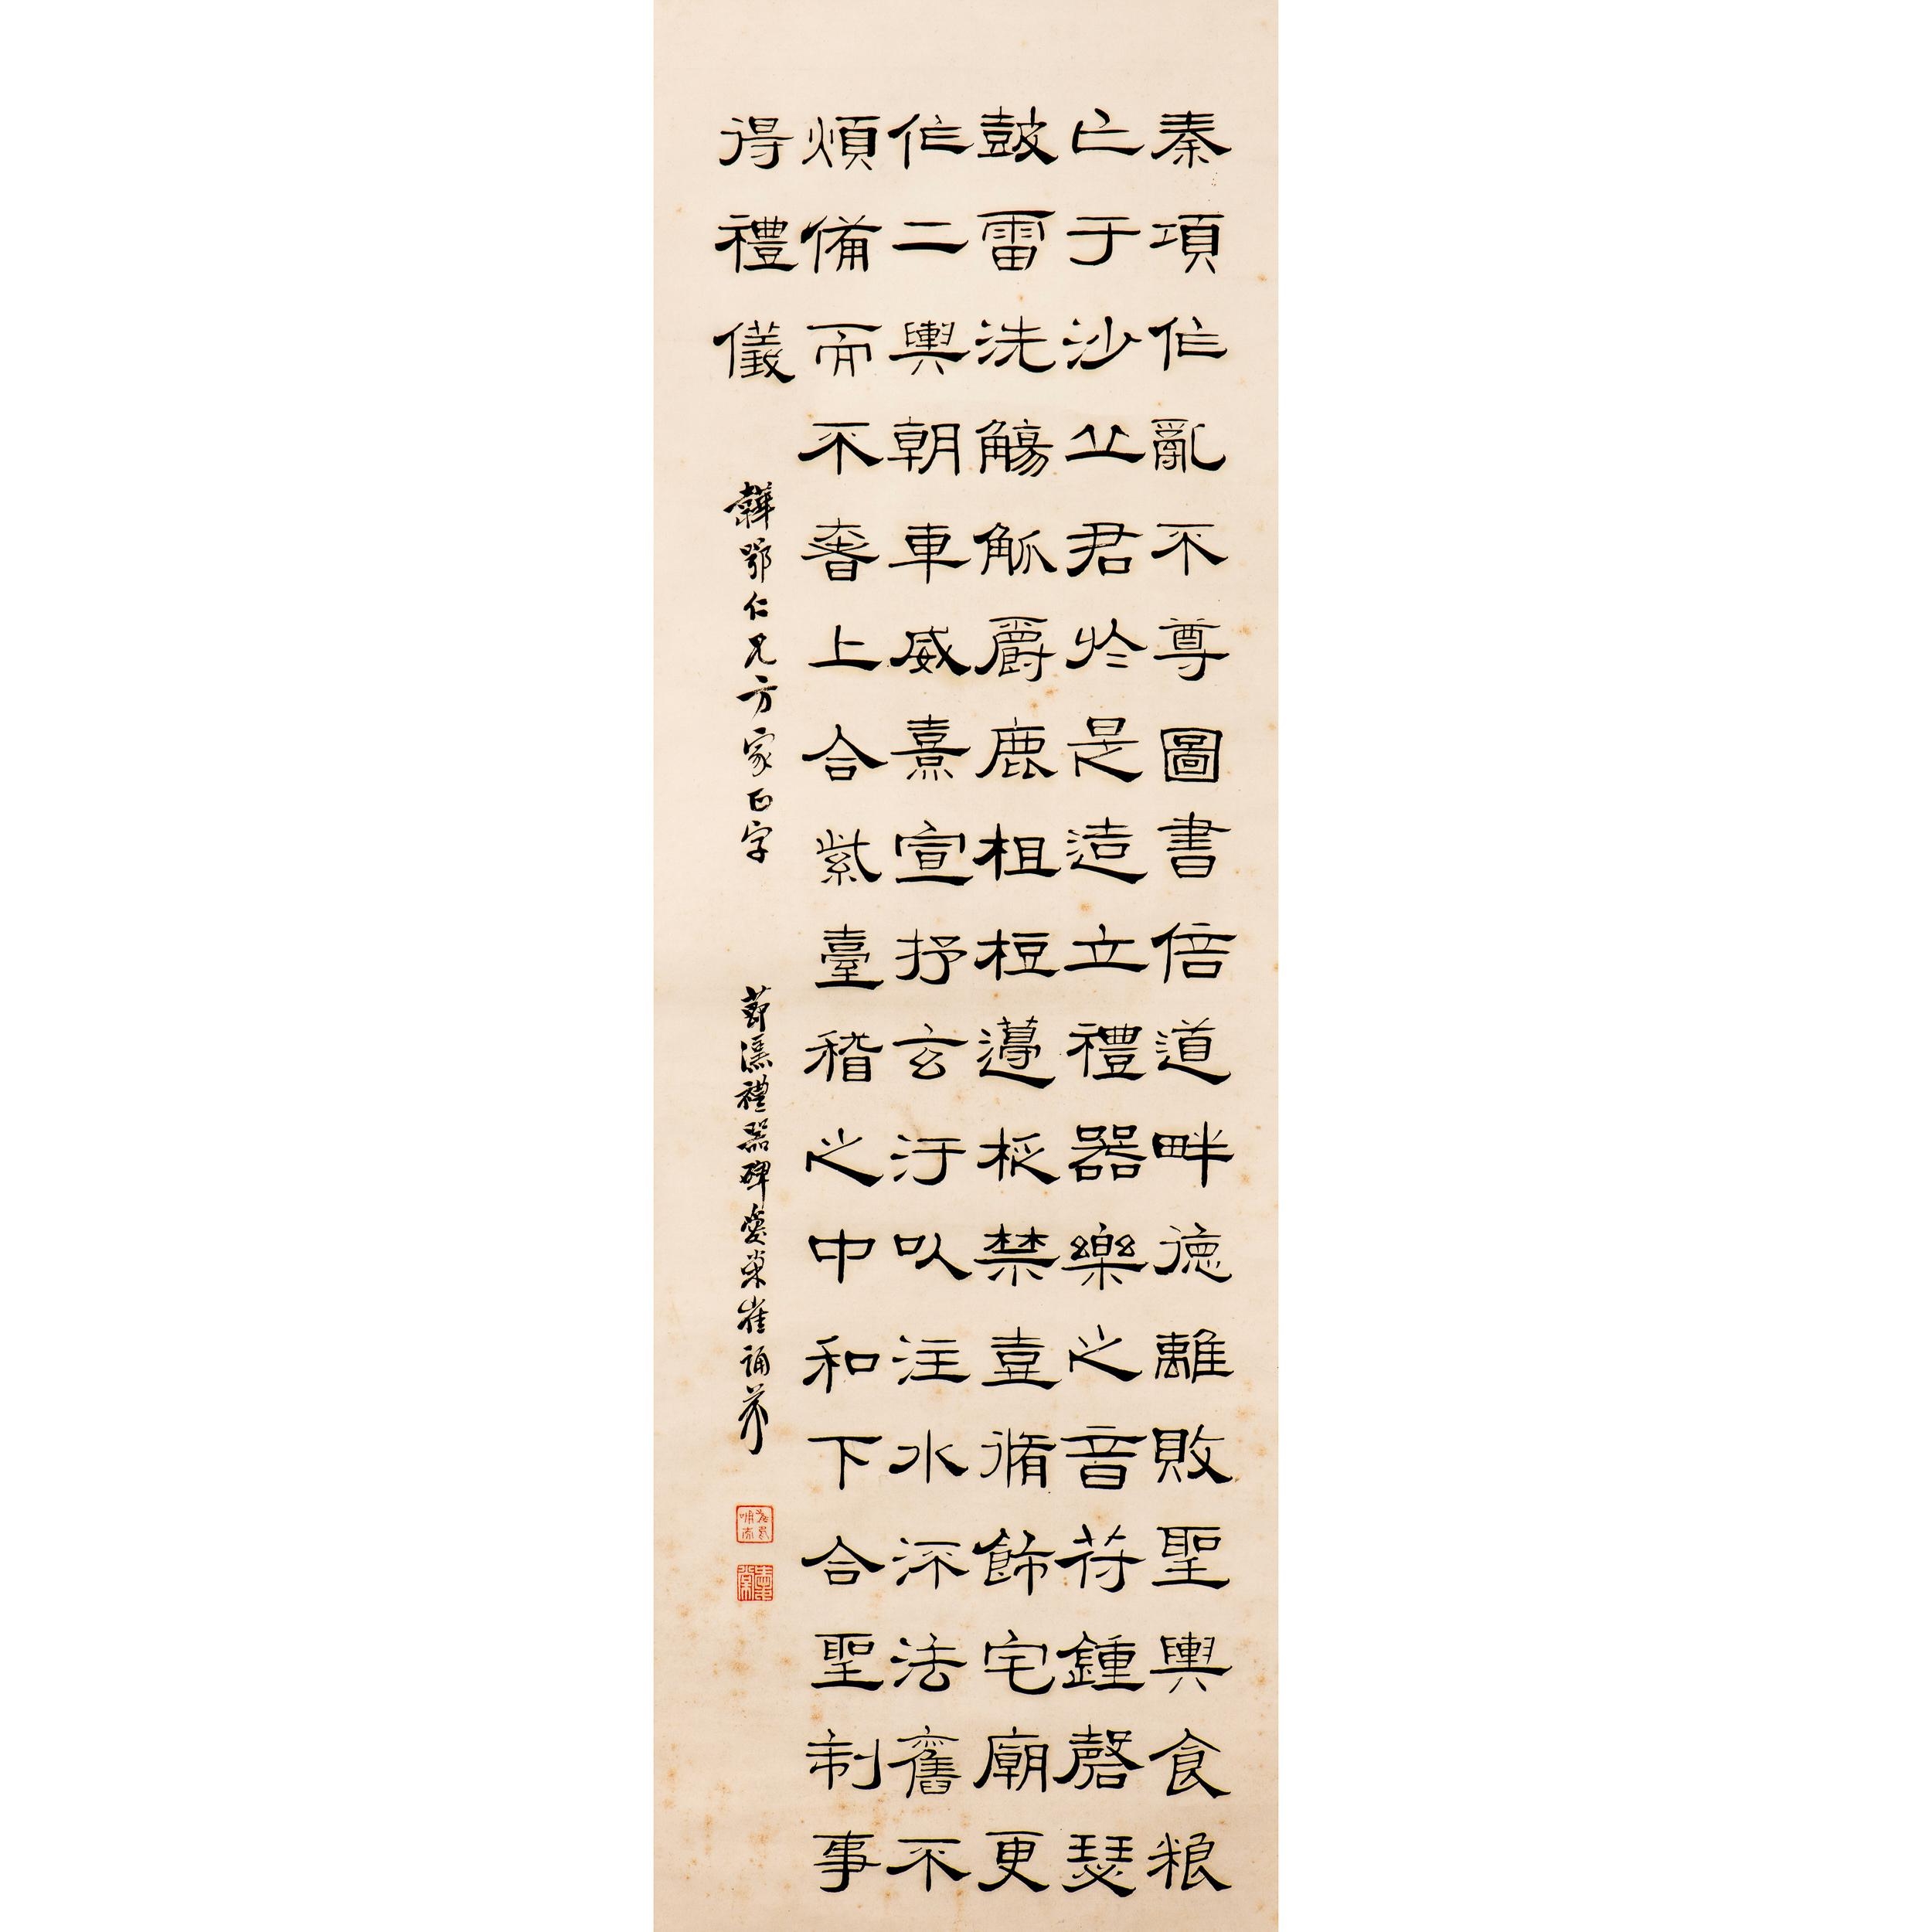 秦項作亂不尊圖書倍道畔德離敗聖輿食粮
亡于沙丘君於是造立禮器樂之音苻鍾磬瑟
鼓雷洗觴觚爵鹿柤梪籩柉禁壴脩飾宅廟更
作二輿朝車威熹宣抒玄汙以注水深法舊不
煩備而不奢上合紫臺稽之中和下合聖制事
得禮儀
韡鄂仁兄方家正字
節漢禮器碑愛巢崔誦芬